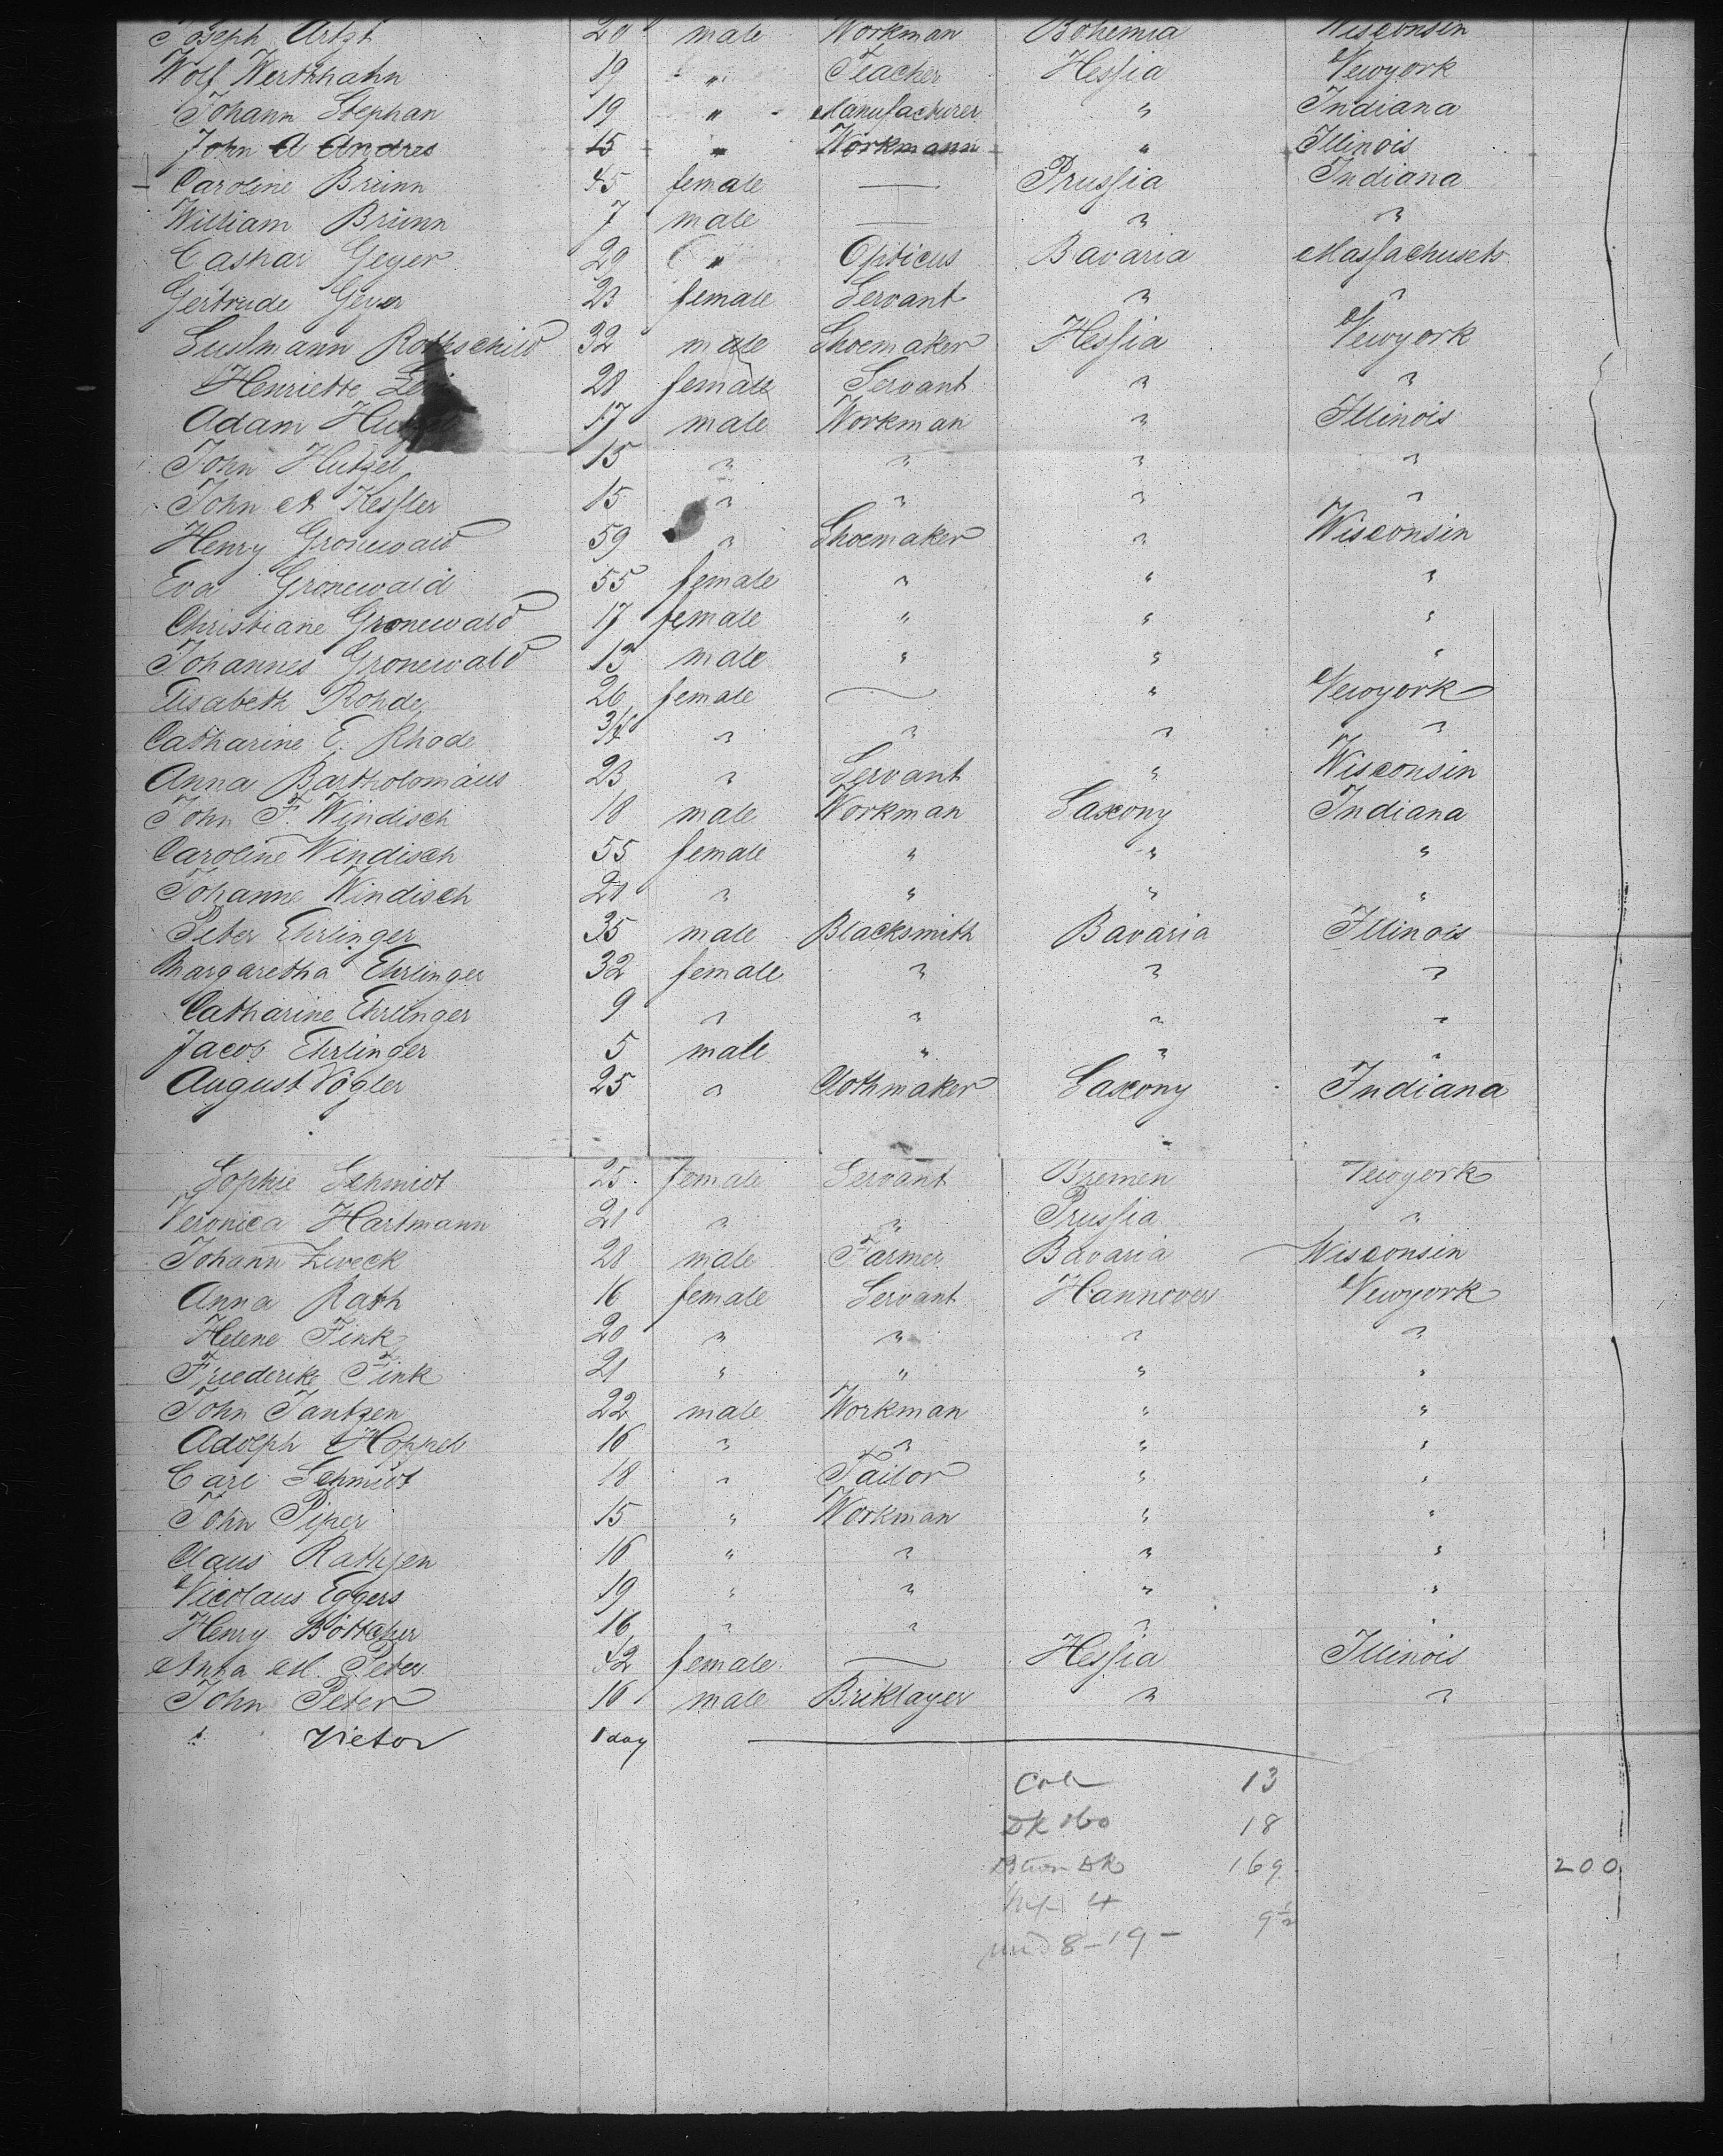 Joseph Artzt 20 male Workman Bohemia Wisconsin
Wolf Werthhahn 19 " Teacher Hessia Newyork
Johann Stephan 19 " Manufacturer " Indiana
John A Andres 15 " Workmann " Illinois
Caroline Brünn 45 female — Prussia Indiana
William Brünn 7 male — " "
Caspar Geyer 29 " Opticus Bavaria Massachusets
Gertrude Geyer 23 female Servant " "
Suslmann Rothschild 32 male Shoemaker Hessia Newyork
Henriette 28 female Servant " "
Adam 17 male Workman " Illinois
John Hutzel 15 " " " "
John A Kessler 15 " " " "
Henry Gronewald 59 " Shoemaker " Wisconsin
Eva Gronewald 55 female " " "
Christiane Gronewald 17 female " " "
Johannes Gronewald 13 male " " "
Elisabeth Rohde 26 female — " Newyork
Catharine E. Rhode 3/4 " " " "
Anna Bartholomäus 23 " Servant " Wisconsin
John F. Windisch 18 male Workman Saxony Indiana
Caroline Windisch 55 female " " "
Johanne Windisch 21 " " " "
Peter Ehrlinger 35 male Blacksmith Bavaria Illinois
Margaretha Ehrlinger 32 female " " "
Catharine Ehrlinger 9 " " " "
Jacob Ehrlinger 5 male " " "
August Vogler 25 " Clothmaker Saxony Indiana
Sophie Schmidt 25 female Servant Bremen Newyork
Veronica Hartmann 21 " " Prussia "
Johann Zweck 28 male Farmer Bavaria Wisconsin
Anna Rath 16 female Servant Hannover Newyork
Helene Fink 20 " " " "
Friederike Fink 21 " " " "
John Jantzen 22 male Workman " "
Adolph Hoppe 16 " " " "
Carl Schmidt 18 " Tailor " "
John Piper 15 " Workman " "
Claus Rathjen 16 " " " "
Nicolaus Eggers 19 " " " "
Henry Böttcher 16 " " " "
Anna M. Peter 42 female — Hessia Illinois
John Peter 16 male Briklayer " "
" Victor 1 day
Cab 13
18
169 200
4 9½
und 8 - 19 -